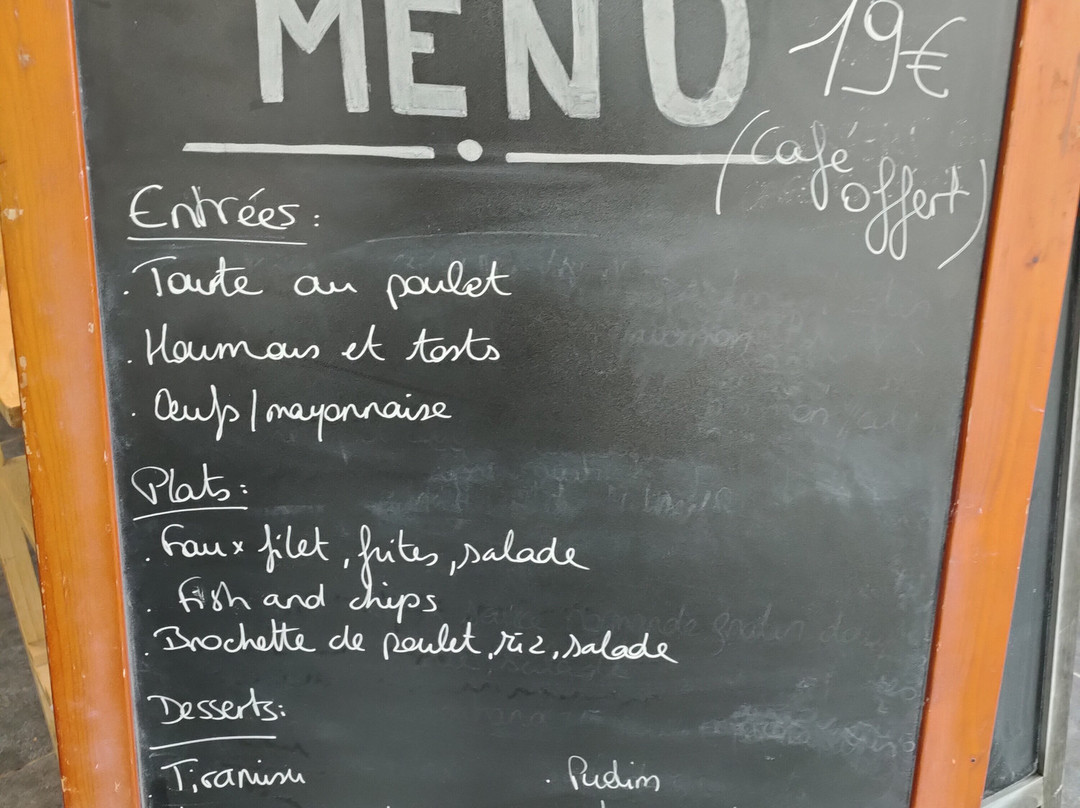 MENU
19€
(café
offert)
Entrées:
. Tourte au poulet
. Houmous et tosts
. Œufs/mayonnaise
Plats:
. Faux filet, frites, salade
. Fish and chips
. Brochette de poulet, riz, salade
Desserts:
Tiramisu . Pudim